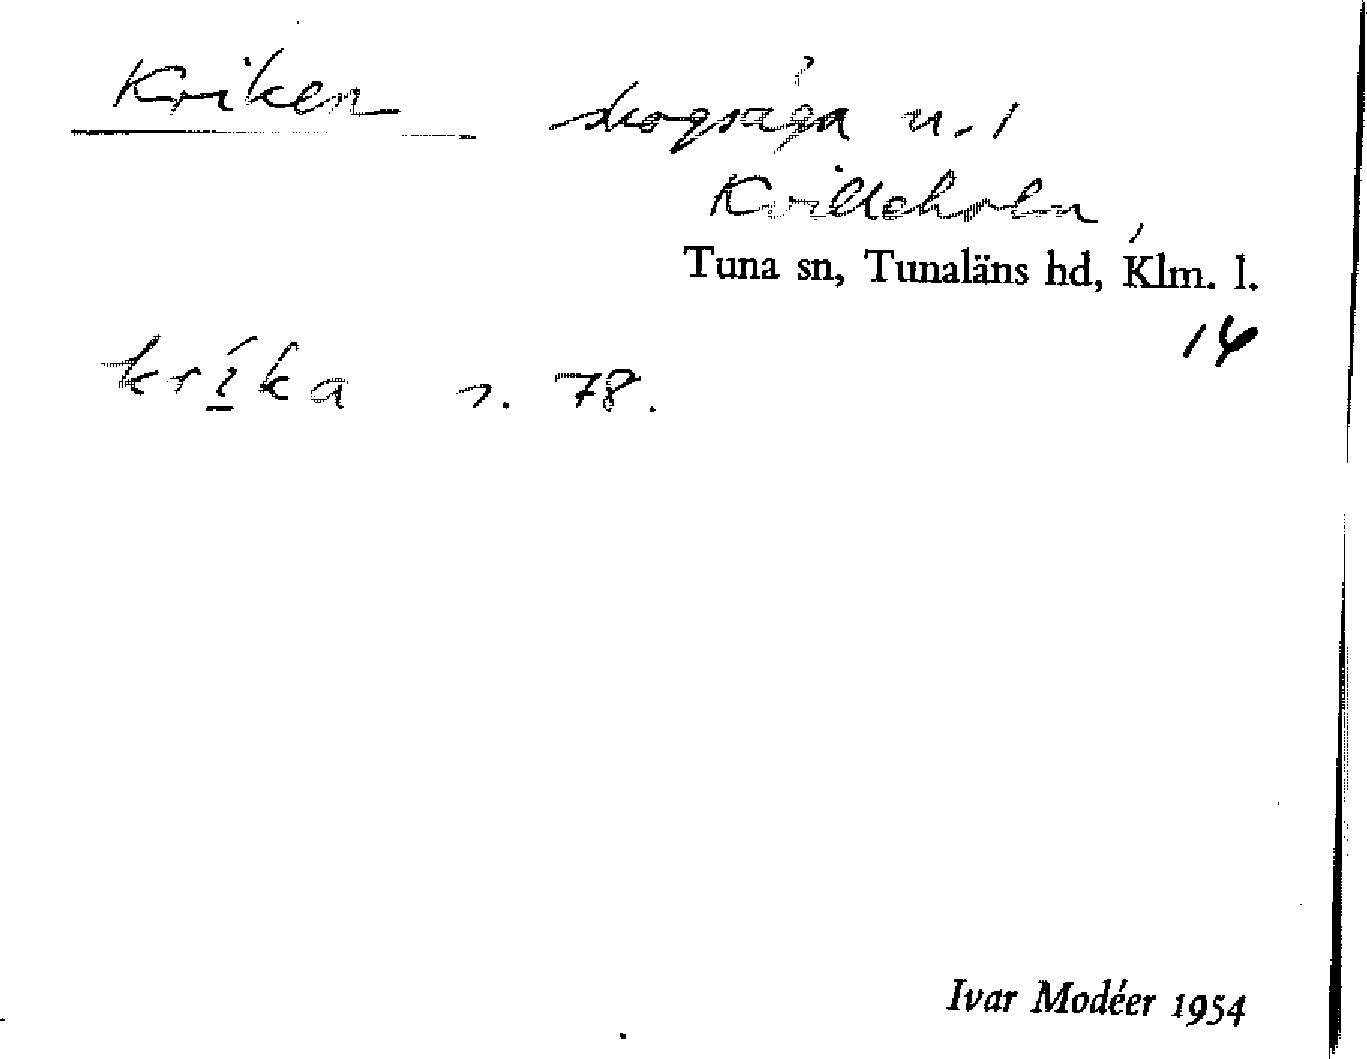 Kriken skogsäga n. 1
Kvilleholm,
Tuna sn, Tunaläns hd, Klm. l.
14
kríka s. 78.
Ivar Modéer 1954